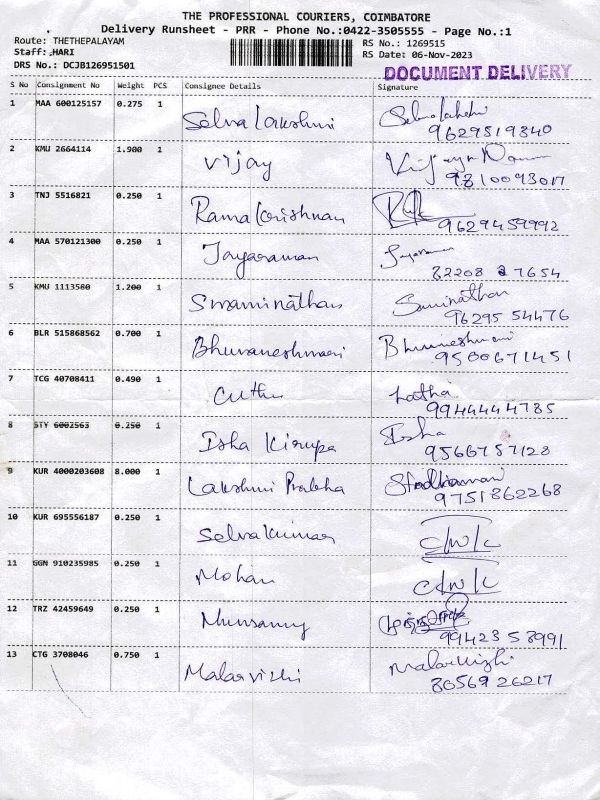 THE PROFESSIONAL COURIERS, COIMBATORE
Delivery Runsheet - PRR - Phone No.:0422-3505555 - Page No.:1
Route: THETHEPALAYAM
Staff: HARI
DRS No.: DCJB126951501
RS No.: 1269515
RS Date: 06-Nov-2023
DOCUMENT DELIVERY
S No Consignment No Weight PCS Consignee Details Signature
1 MAA 600125157 0.275 1 Selva Lakshmi
9629519340
2 KMU 2664114 1.900 1 Vijay
9810093017
3 TNJ 5516821 0.250 1 Rama Krishnan
9629459992
4 MAA 570121300 0.250 1 Jayaraman Jayaraman
82208 27654
5 KMU 1113580 1.200 1 Swaminathan Saminathan
96295 54476
6 BLR 515868562 0.700 1 Bhuvaneshwari Bhuvaneshwari
9500671451
7 TCG 40708411 0.490 1 Latha
9944444785
8 STY 6002563 0.250 1 Isha Kirupa Isha
9566757128
9 KUR 4000203608 8.000 1 Lakshmi Prabha
9751862268
10 KUR 695556187 0.250 1 Selvakumar
11 GGN 910235985 0.250 1 Mohan
12 TRZ 42459649 0.250 1 Munsamy
99423 58991
13 CTG 3708046 0.750 1 Malarvizhi Malarvizhi
80569 26217